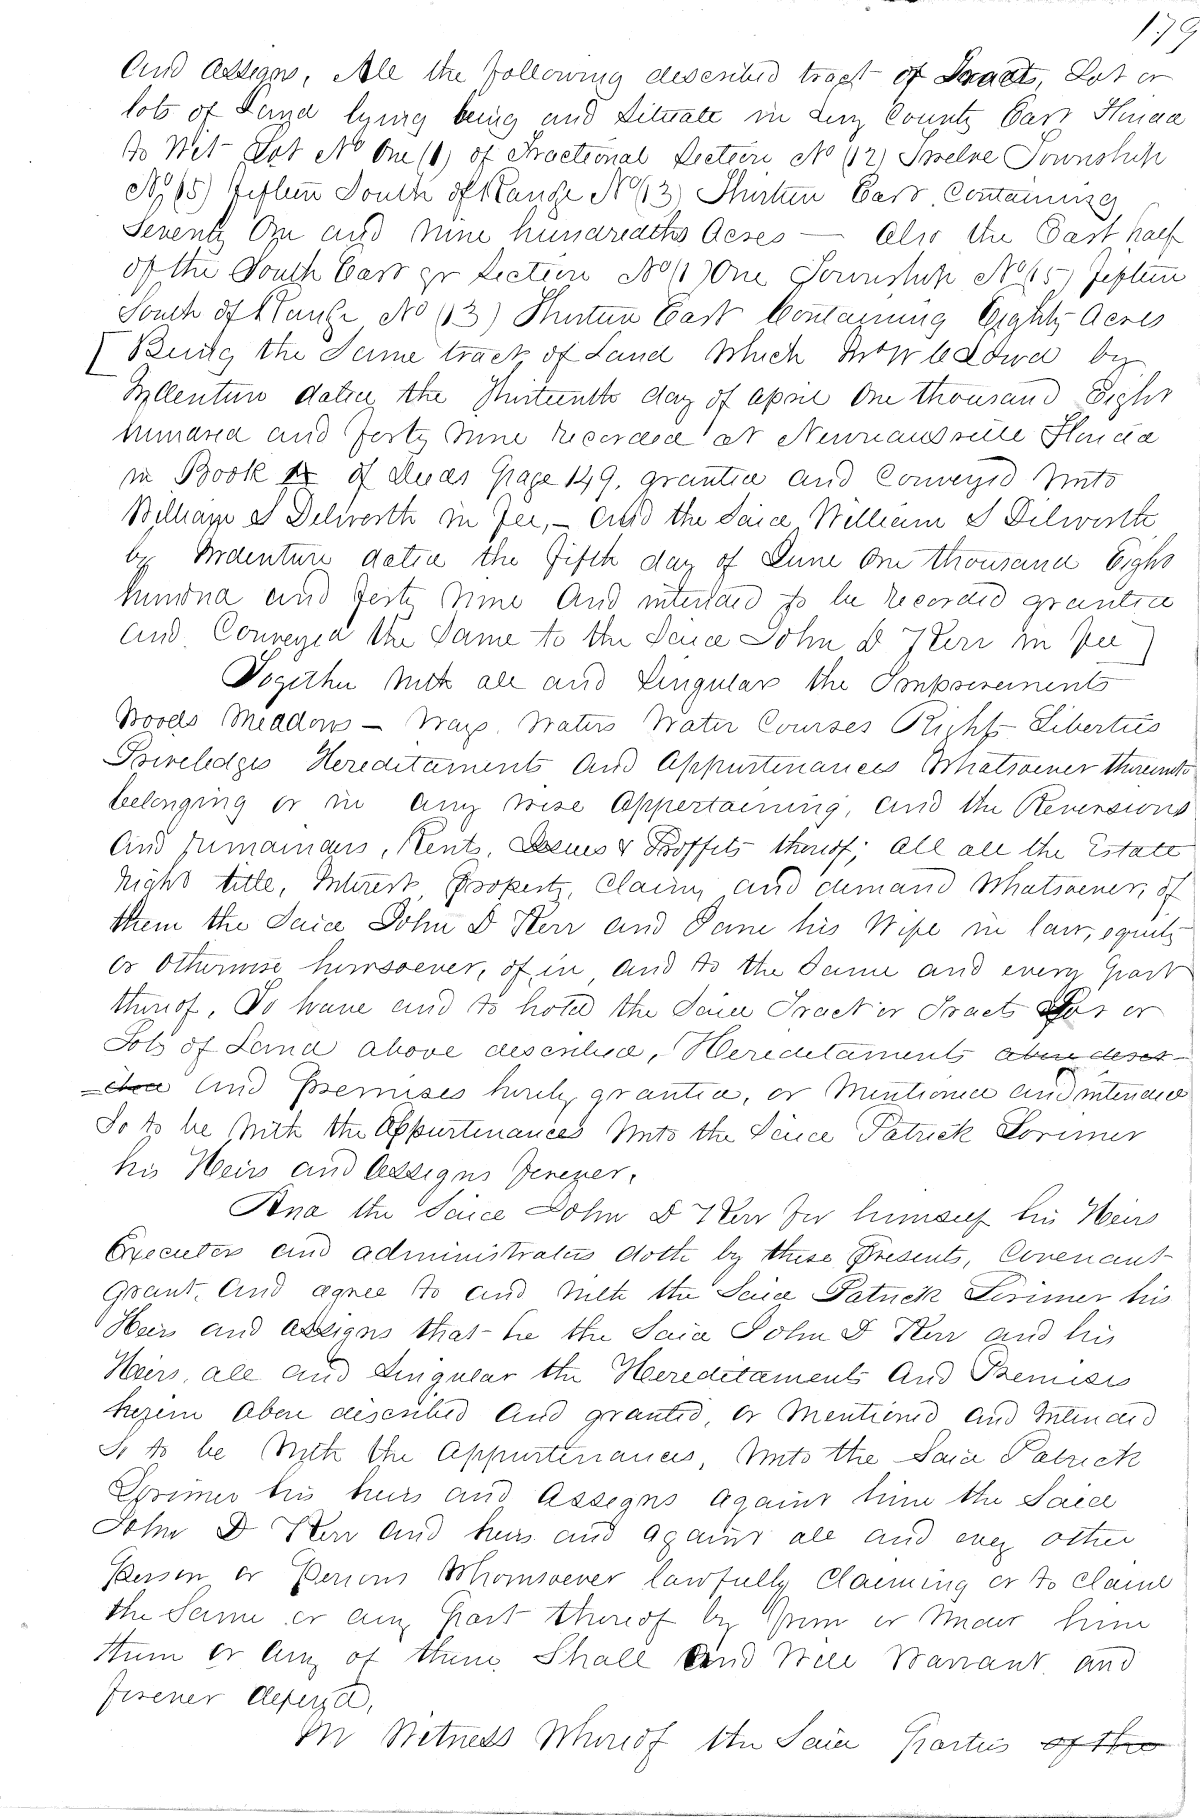 179
And assigns, All the following described tract of Tracts, Lot or
lots of Land lying being and Situate in Levy County East Florida
to Wit Lot No One (1) of Fractional Section No (12) Twelve Township
No (15) fifteen South of Range No (13) Thirteen East Containing
Seventy One and nine hundredths Acres — Also the East half
of the South East qr Section No (1) One Township No (15) fifteen
South of Range No (13) Thirteen East Containing Eighty Acres
[Being the Same track of Land which by
Indenture dated the Thirteenth day of April One thousand Eight
hundred and forty Nine recorded at Newnansville Florida
in Book A of Deeds page 149, granted and Conveyed Unto
William S Dilworth in fee, – and the Said William S Dilworth
by Indenture dated the fifth day of June One thousand Eight
hundred and forty Nine And intended to be recorded granted
and Conveyed the Same to the Said John D Kerr in fee]
Together With all and Singular the Improvements
Woods Meadows – Ways Waters Water Courses Rights Liberties
Priveledges Hereditaments And Appurtenances Whatsoever thereunto
belonging or in any wise Appertaining, and the Reversions
And remainders, Rents, Issues & Proffits thereof; All all the Estate
right title, Interest, property, Claim and demand Whatsoever, of
them the Said John D Kerr and Jane his Wife in law, equity
or otherwise howsoever, of, in and to the Same and every part
thereof, To have and to hold the Said Tract or Tracts Lot or
Lots of Land above described, Hereditaments above descr-
=ibed and Premises hereby granted, or Mentioned and intended
So to be With the Appurtenances Unto the Said Patrick Lorimer
his Heirs and Assigns forever.
And the Said John D Kerr for himself his Heirs
Executors and administrators doth by these Presents, Covenant
grant, and agree to and with the Said Patrick Lorimer his
Heirs and assigns that he the Said John D Kerr and his
Heirs, all and Singular the Hereditaments And Premises
herein above described And granted, or Mentioned and Intended
So to be With the Appurtenances, Unto the Said Patrick
Lorimer his heirs and Assigns Against him the Said
John D Kerr And heirs and against all and every other
Person or Persons Whomsoever lawfully Claiming or to Claim
the Same or any part thereof by from or Under him
them or any of them Shall And Will Warrant and
forever defend,
In Witness Whereof the Said Parties of the